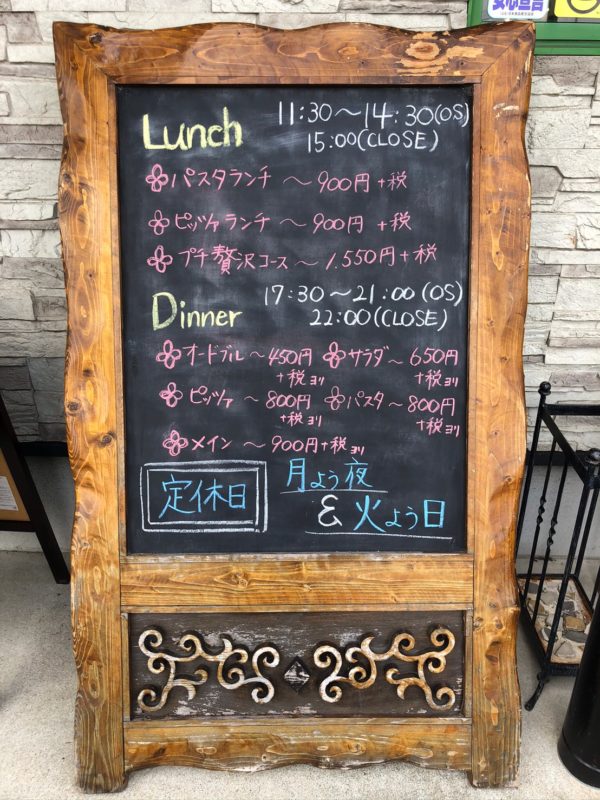 安心宣言
Lunch 11:30〜14:30(OS)
15:00(CLOSE)
パスタランチ 〜 900円+税
ピッツァランチ 〜 900円 +税
プチ贅沢コース 〜 1.550円+税
Dinner 17:30〜21:00(OS)
22:00(CLOSE)
オードブル 〜 450円+税ヨリ サラダ 〜 650円+税ヨリ
ピッツァ 〜 800円+税ヨリ パスタ 〜 800円+税ヨリ
メイン 〜 900円+税ヨリ
定休日 月よう夜
& 火よう日